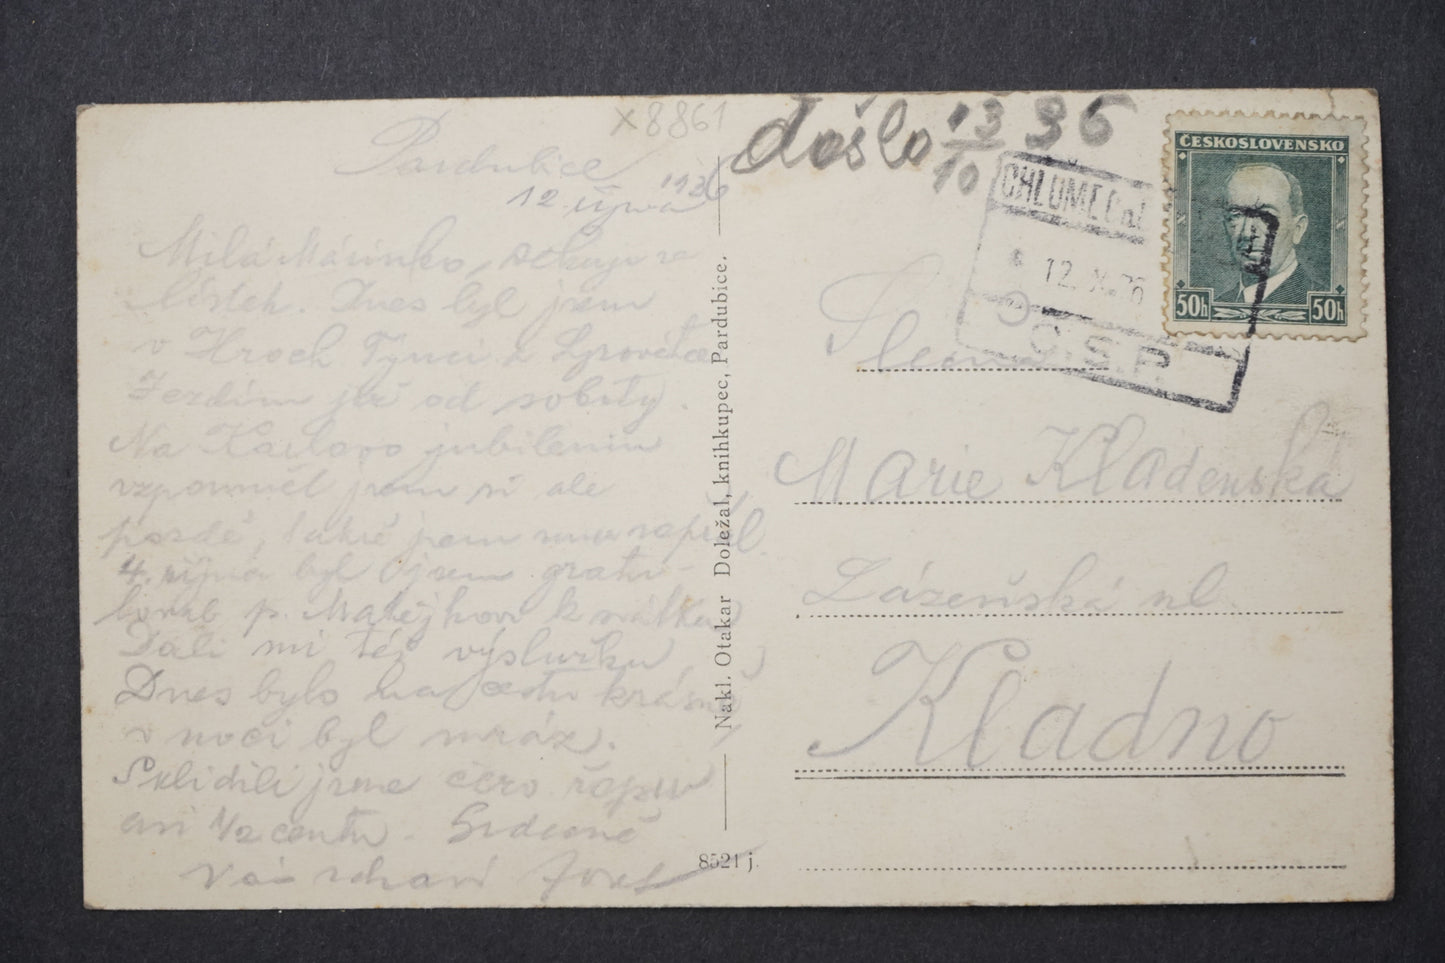 x8861
došlo 13/10 36
Pardubice
12 října 1936
Milá Mařinko, děkuji za
lístek. Dnes byl jsem
v Hroch Týnci a
Jezdím již od soboty.
Na Karlovo jubileum
vzpomněl jsem si ale
pozdě, také jsem mu nepsal.
4. října byl jsem gratu-
lovat p. Matějkovi k svátku
Dali mi též výslužku
Dnes bylo na cestu krásně
v noci byl mráz.
Sklidili jsme řepu
asi 1/2 centu. Srdečně
Vás zdraví Josef
Nakl. Otakar Doležal, knihkupec, Pardubice.
8521 j.
ČESKOSLOVENSKO
50h 50h
CHLUMEC n/
12. X. 36
Č.S.P.
Slečna
Marie Kladenská
Lázeňská ul.
Kladno